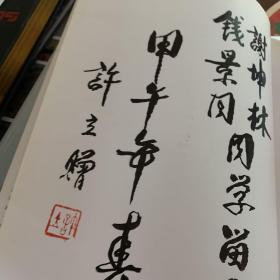 謝坤林
钱景同同学留
甲午年春
許立贈